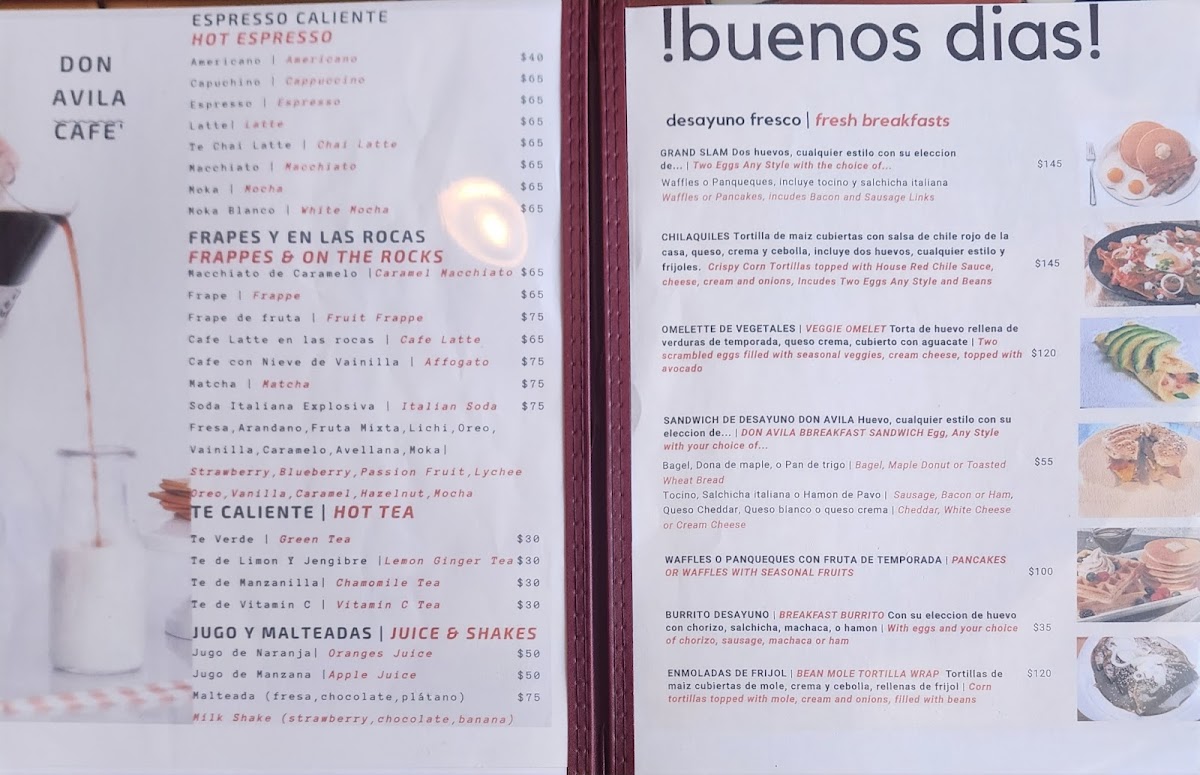 DON
AVILA
CAFE'
ESPRESSO CALIENTE
HOT ESPRESSO
Americano | Americano $40
Capuchino | Cappuccino $65
Espresso | Espresso $65
Latte| Latte $65
Te Chai Latte | Chai Latte $65
Macchiato | Macchiato $65
Moka | Mocha $65
Moka Blanco | White Mocha $65
FRAPES Y EN LAS ROCAS
FRAPPES & ON THE ROCKS
Macchiato de Caramelo |Caramel Macchiato $65
Frape | Frappe $65
Frape de fruta | Fruit Frappe $75
Cafe Latte en las rocas | Cafe Latte $65
Cafe con Nieve de Vainilla | Affogato $75
Matcha | Matcha $75
Soda Italiana Explosiva | Italian Soda $75
Fresa,Arandano,Fruta Mixta,Lichi,Oreo,
Vainilla,Caramelo,Avellana,Moka|
Strawberry,Blueberry,Passion Fruit,Lychee
Oreo,Vanilla,Caramel,Hazelnut,Mocha
TE CALIENTE | HOT TEA
Te Verde | Green Tea $30
Te de Limon Y Jengibre |Lemon Ginger Tea $30
Te de Manzanilla| Chamomile Tea $30
Te de Vitamin C | Vitamin C Tea $30
JUGO Y MALTEADAS | JUICE & SHAKES
Jugo de Naranja| Oranges Juice $50
Jugo de Manzana |Apple Juice $50
Malteada (fresa,chocolate,plátano) $75
Milk Shake (strawberry,chocolate,banana)
!buenos dias!
desayuno fresco | fresh breakfasts
GRAND SLAM Dos huevos, cualquier estilo con su eleccion
de... | Two Eggs Any Style with the choice of... $145
Waffles o Panqueques, incluye tocino y salchicha italiana
Waffles or Pancakes, incudes Bacon and Sausage Links
CHILAQUILES Tortilla de maiz cubiertas con salsa de chile rojo de la
casa, queso, crema y cebolla, incluye dos huevos, cualquier estilo y
frijoles. Crispy Corn Tortillas topped with House Red Chile Sauce, $145
cheese, cream and onions, Incudes Two Eggs Any Style and Beans
OMELETTE DE VEGETALES | VEGGIE OMELET Torta de huevo rellena de
verduras de temporada, queso crema, cubierto con aguacate | Two
scrambled eggs filled with seasonal veggies, cream cheese, topped with $120
avocado
SANDWICH DE DESAYUNO DON AVILA Huevo, cualquier estilo con su
eleccion de... | DON AVILA BBREAKFAST SANDWICH Egg, Any Style
with your choice of...
Bagel, Dona de maple, o Pan de trigo | Bagel, Maple Donut or Toasted $55
Wheat Bread
Tocino, Salchicha italiana o Hamon de Pavo | Sausage, Bacon or Ham,
Queso Cheddar, Queso blanco o queso crema | Cheddar, White Cheese
or Cream Cheese
WAFFLES O PANQUEQUES CON FRUTA DE TEMPORADA | PANCAKES
OR WAFFLES WITH SEASONAL FRUITS $100
BURRITO DESAYUNO | BREAKFAST BURRITO Con su eleccion de huevo
con chorizo, salchicha, machaca, o hamon | With eggs and your choice $35
of chorizo, sausage, machaca or ham
ENMOLADAS DE FRIJOL | BEAN MOLE TORTILLA WRAP Tortillas de $120
maiz cubiertas de mole, crema y cebolla, rellenas de frijol | Corn
tortillas topped with mole, cream and onions, filled with beans